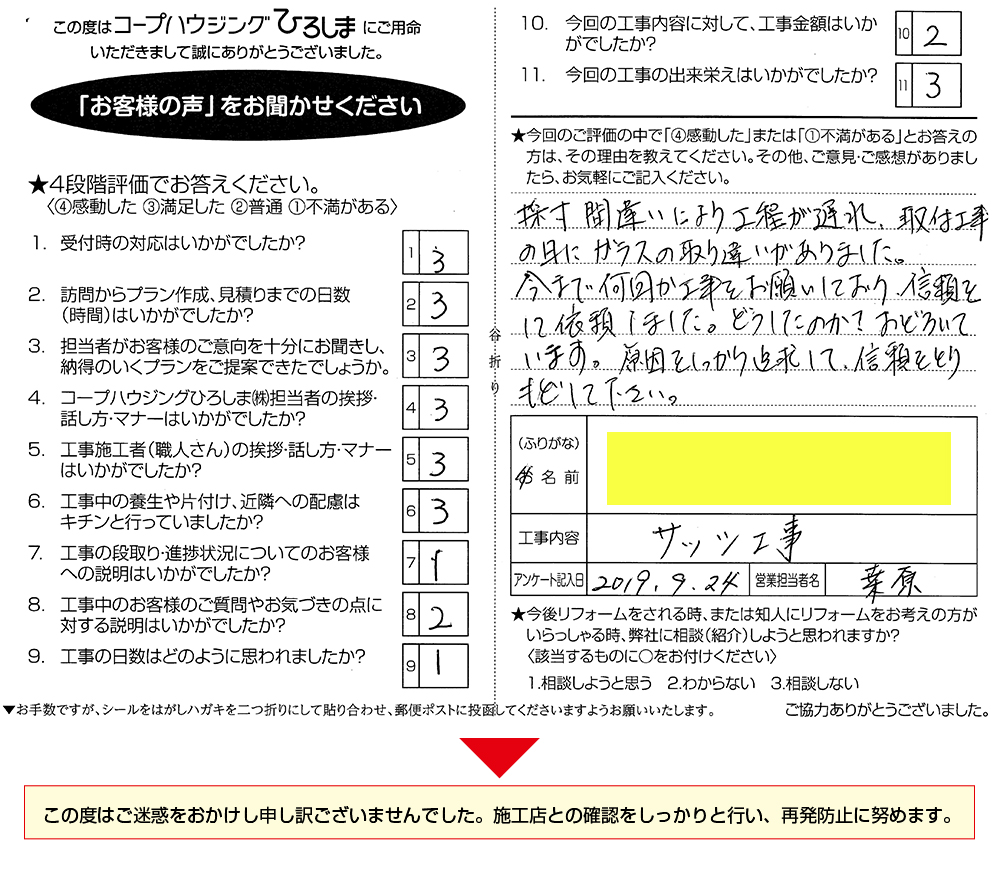 この度はコープハウジングひろしまにご用命
いただきまして誠にありがとうございました。
「お客様の声」をお聞かせください
★4段階評価でお答えください。
〈④感動した ③満足した ②普通 ①不満がある〉
1. 受付時の対応はいかがでしたか? 1 3
2. 訪問からプラン作成、見積りまでの日数
(時間)はいかがでしたか? 2 3
3. 担当者がお客様のご意向を十分にお聞きし、
納得のいくプランをご提案できたでしょうか。 3 3
4. コープハウジングひろしま㈱担当者の挨拶・
話し方・マナーはいかがでしたか? 4 3
5. 工事施工者(職人さん)の挨拶・話し方・マナー
はいかがでしたか? 5 3
6. 工事中の養生や片付け、近隣への配慮は
キチンと行っていましたか? 6 3
7. 工事の段取り・進捗状況についてのお客様
への説明はいかがでしたか? 7 1
8. 工事中のお客様のご質問やお気づきの点に
対する説明はいかがでしたか? 8 2
9. 工事の日数はどのように思われましたか? 9 1
谷折り
10. 今回の工事内容に対して、工事金額はいか
がでしたか? 10 2
11. 今回の工事の出来栄えはいかがでしたか? 11 3
★今回のご評価の中で「④感動した」または「①不満がある」とお答えの
方は、その理由を教えてください。その他、ご意見・ご感想がありまし
たら、お気軽にご記入ください。
採寸間違いにより工程が遅れ、取付工事
の日にガラスの取り違いがありました。
今まで何回か工事をお願いしており、信頼を
して依頼しました。どうしたのか?おどろいて
います。原因をしっかり追求して、信頼をとり
もどして下さい。
(ふりがな)
お名前
工事内容 サッシ工事
アンケート記入日 2019.9.24 営業担当者名 葉原
★今後リフォームをされる時、または知人にリフォームをお考えの方が
いらっしゃる時、弊社に相談(紹介)しようと思われますか?
〈該当するものに○をお付けください〉
1.相談しようと思う 2.わからない 3.相談しない
▼お手数ですが、シールをはがしハガキを二つ折りにして貼り合わせ、郵便ポストに投函してくださいますようお願いいたします。
ご協力ありがとうございました。
この度はご迷惑をおかけし申し訳ございませんでした。施工店との確認をしっかりと行い、再発防止に努めます。